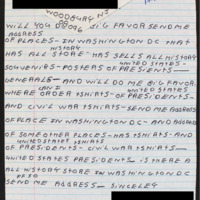 WOODBURY NJ
08096
WILL YOU DO BIG FAVOR SEND ME
ADDRESS
OF PLACES - IN WASHINGTON DC THAT
HISTORY
HAS ALL STORE - HAS SELLS ALL HISTORY
UNITED STATES
SOUVENIRS - POSTERS OF PRESIDENTS -
GENERALS - AND WILL DO ME BIG FAVOR
CAN I UNITED STATES
WHERE ORDER TSHIRTS - OF PRESIDENTS -
AND CIVIL WAR TSHIRTS - SEND ME ADDRESS
OF PLACE IN WASHINGTON DC - AND ADDRESS
OF SOME OTHER PLACES - HAS TSHIRTS - AND
UNITED STATES TSHIRTS
OF PRESIDENTS - CIVIL WAR TSHIRTS -
UNITED STATES PRESIDENTS IS THERE A
ALL HISTORY STORE IN WASHINGTON DC
SEND ME ADDRESS -